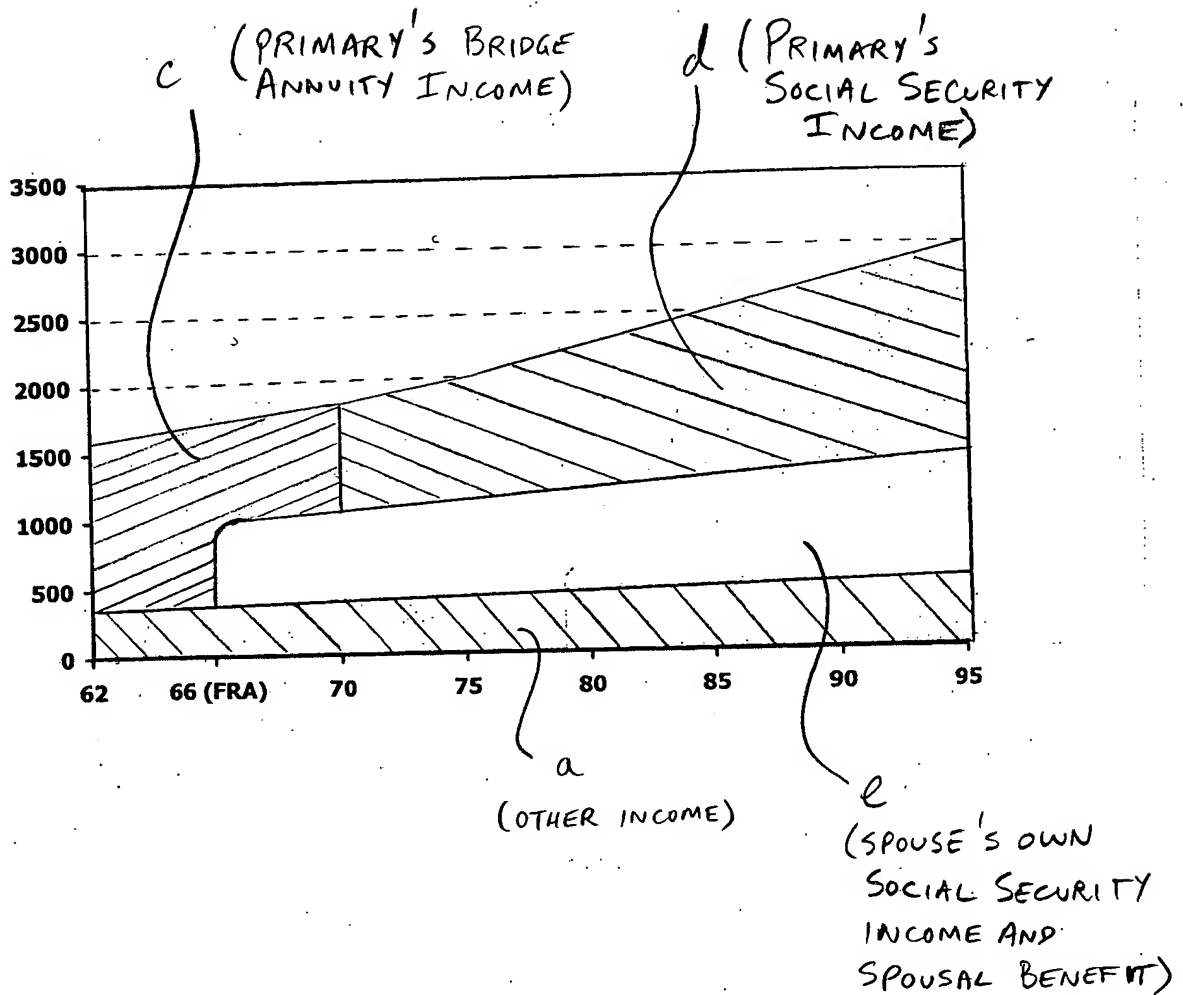 c (PRIMARY'S BRIDGE
ANNUITY INCOME)
d (PRIMARY'S
SOCIAL SECURITY
INCOME)
3500
3000
2500
2000
1500
1000
500
0
62 66 (FRA) 70 75 80 85 90 95
a
(OTHER INCOME)
e
(SPOUSE'S OWN
SOCIAL SECURITY
INCOME AND
SPOUSAL BENEFIT)